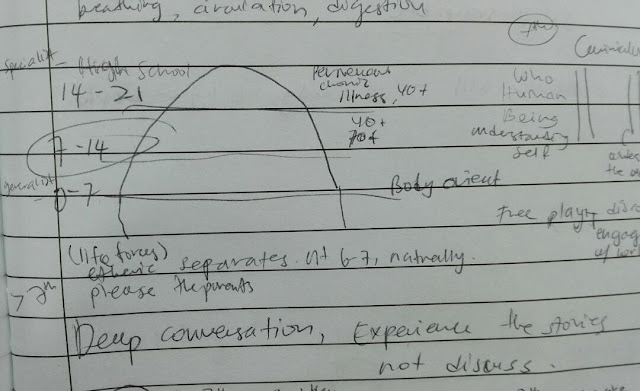 breathing, circulation, digestion
specialist - High School
14 - 21
Permenant
chronic
illness, 40+
7th
Who
Human
Being
understanding
Self
40+
70+
7 - 14
generalist
0 - 7
Body orient
Free play,
engag
(life forces)
etheric separates. At 6-7, natrually.
please the parents
Deep conversation, Experience the stories
not discuss.